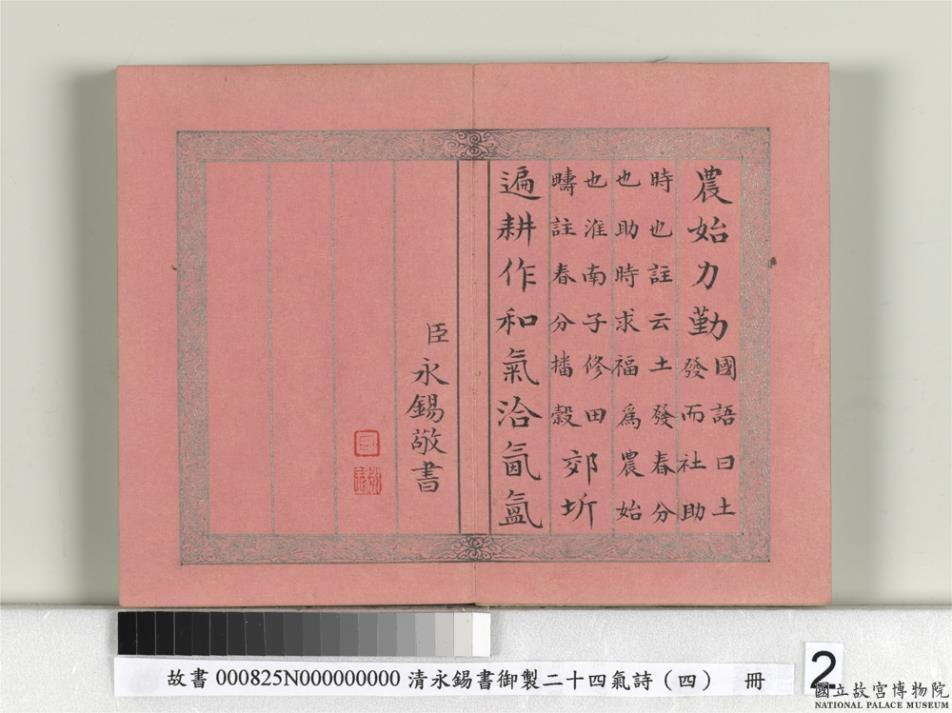 農始力勤
國語曰土
發而社助
時也註云土發春分
也助時求福爲農始
也淮南子修田
疇註春分播穀
郊圻
遍耕作和氣洽氤氳
臣永錫敬書
臣
故書 000825N000000000 清永錫書御製二十四氣詩（四） 冊
2
國立故宮博物院
NATIONAL PALACE MUSEUM